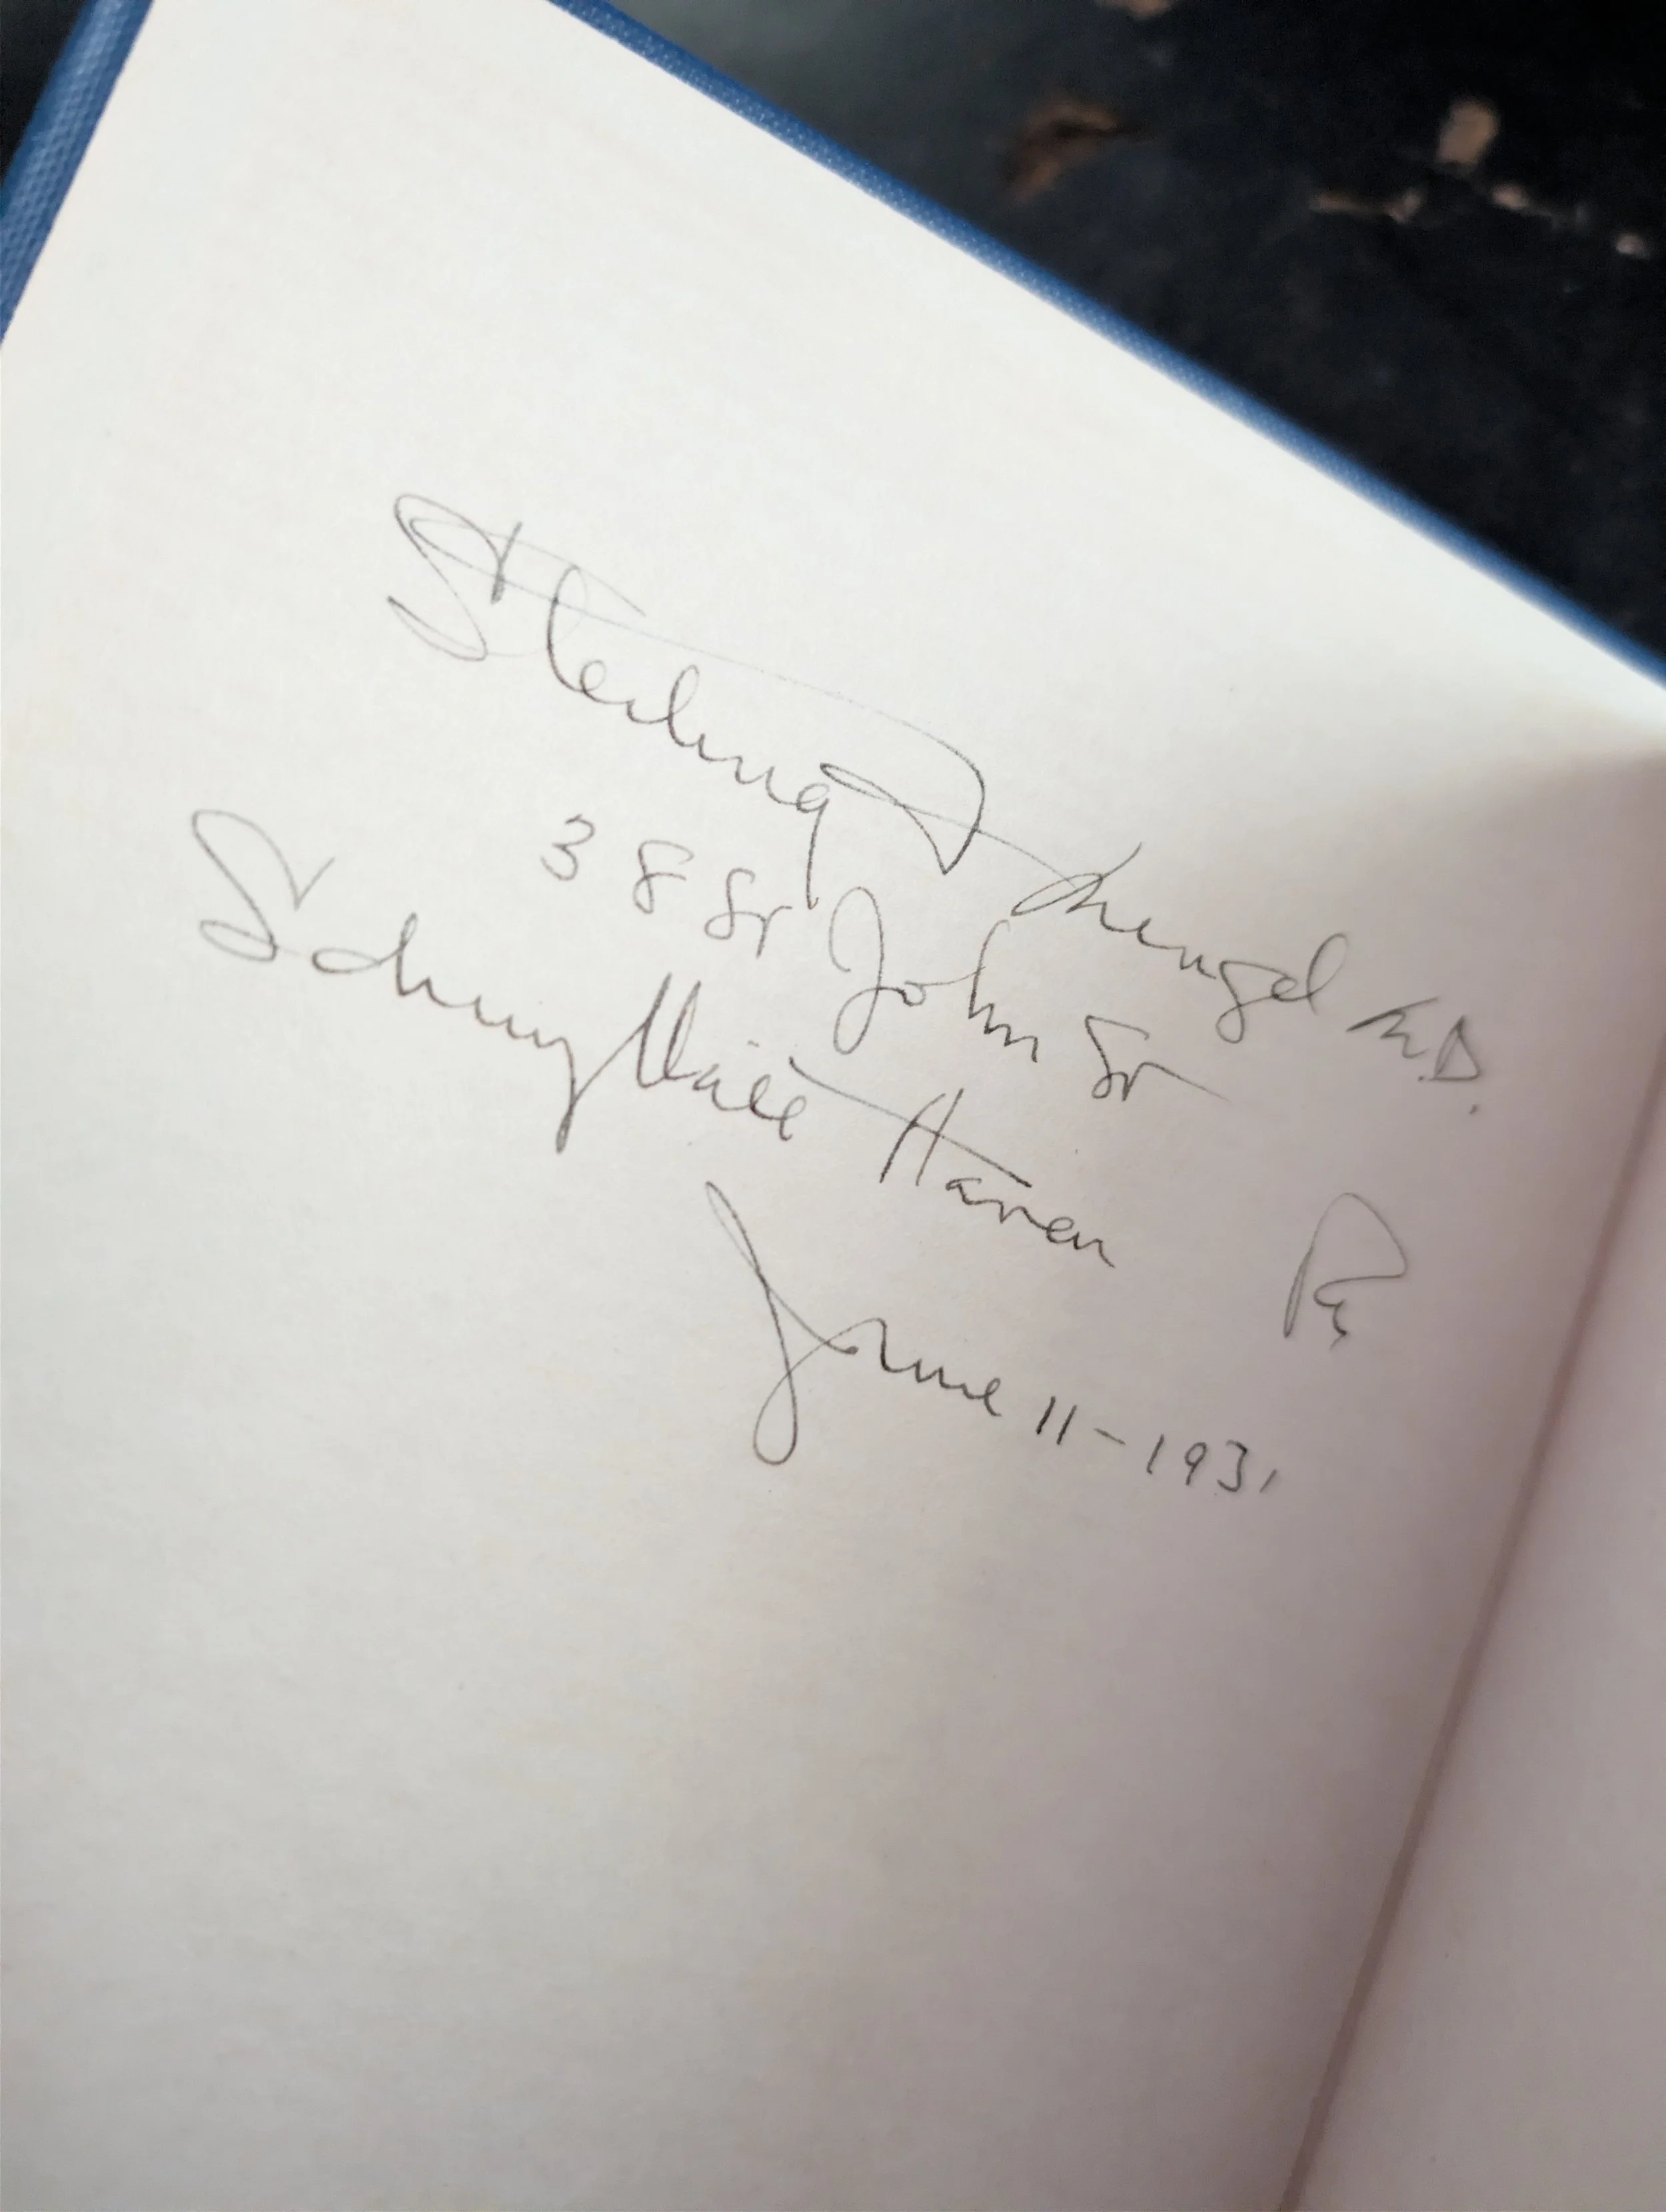 Sterling Mengel M.D.
38 St John St
Schuylkill Haven Pa
June 11-1931